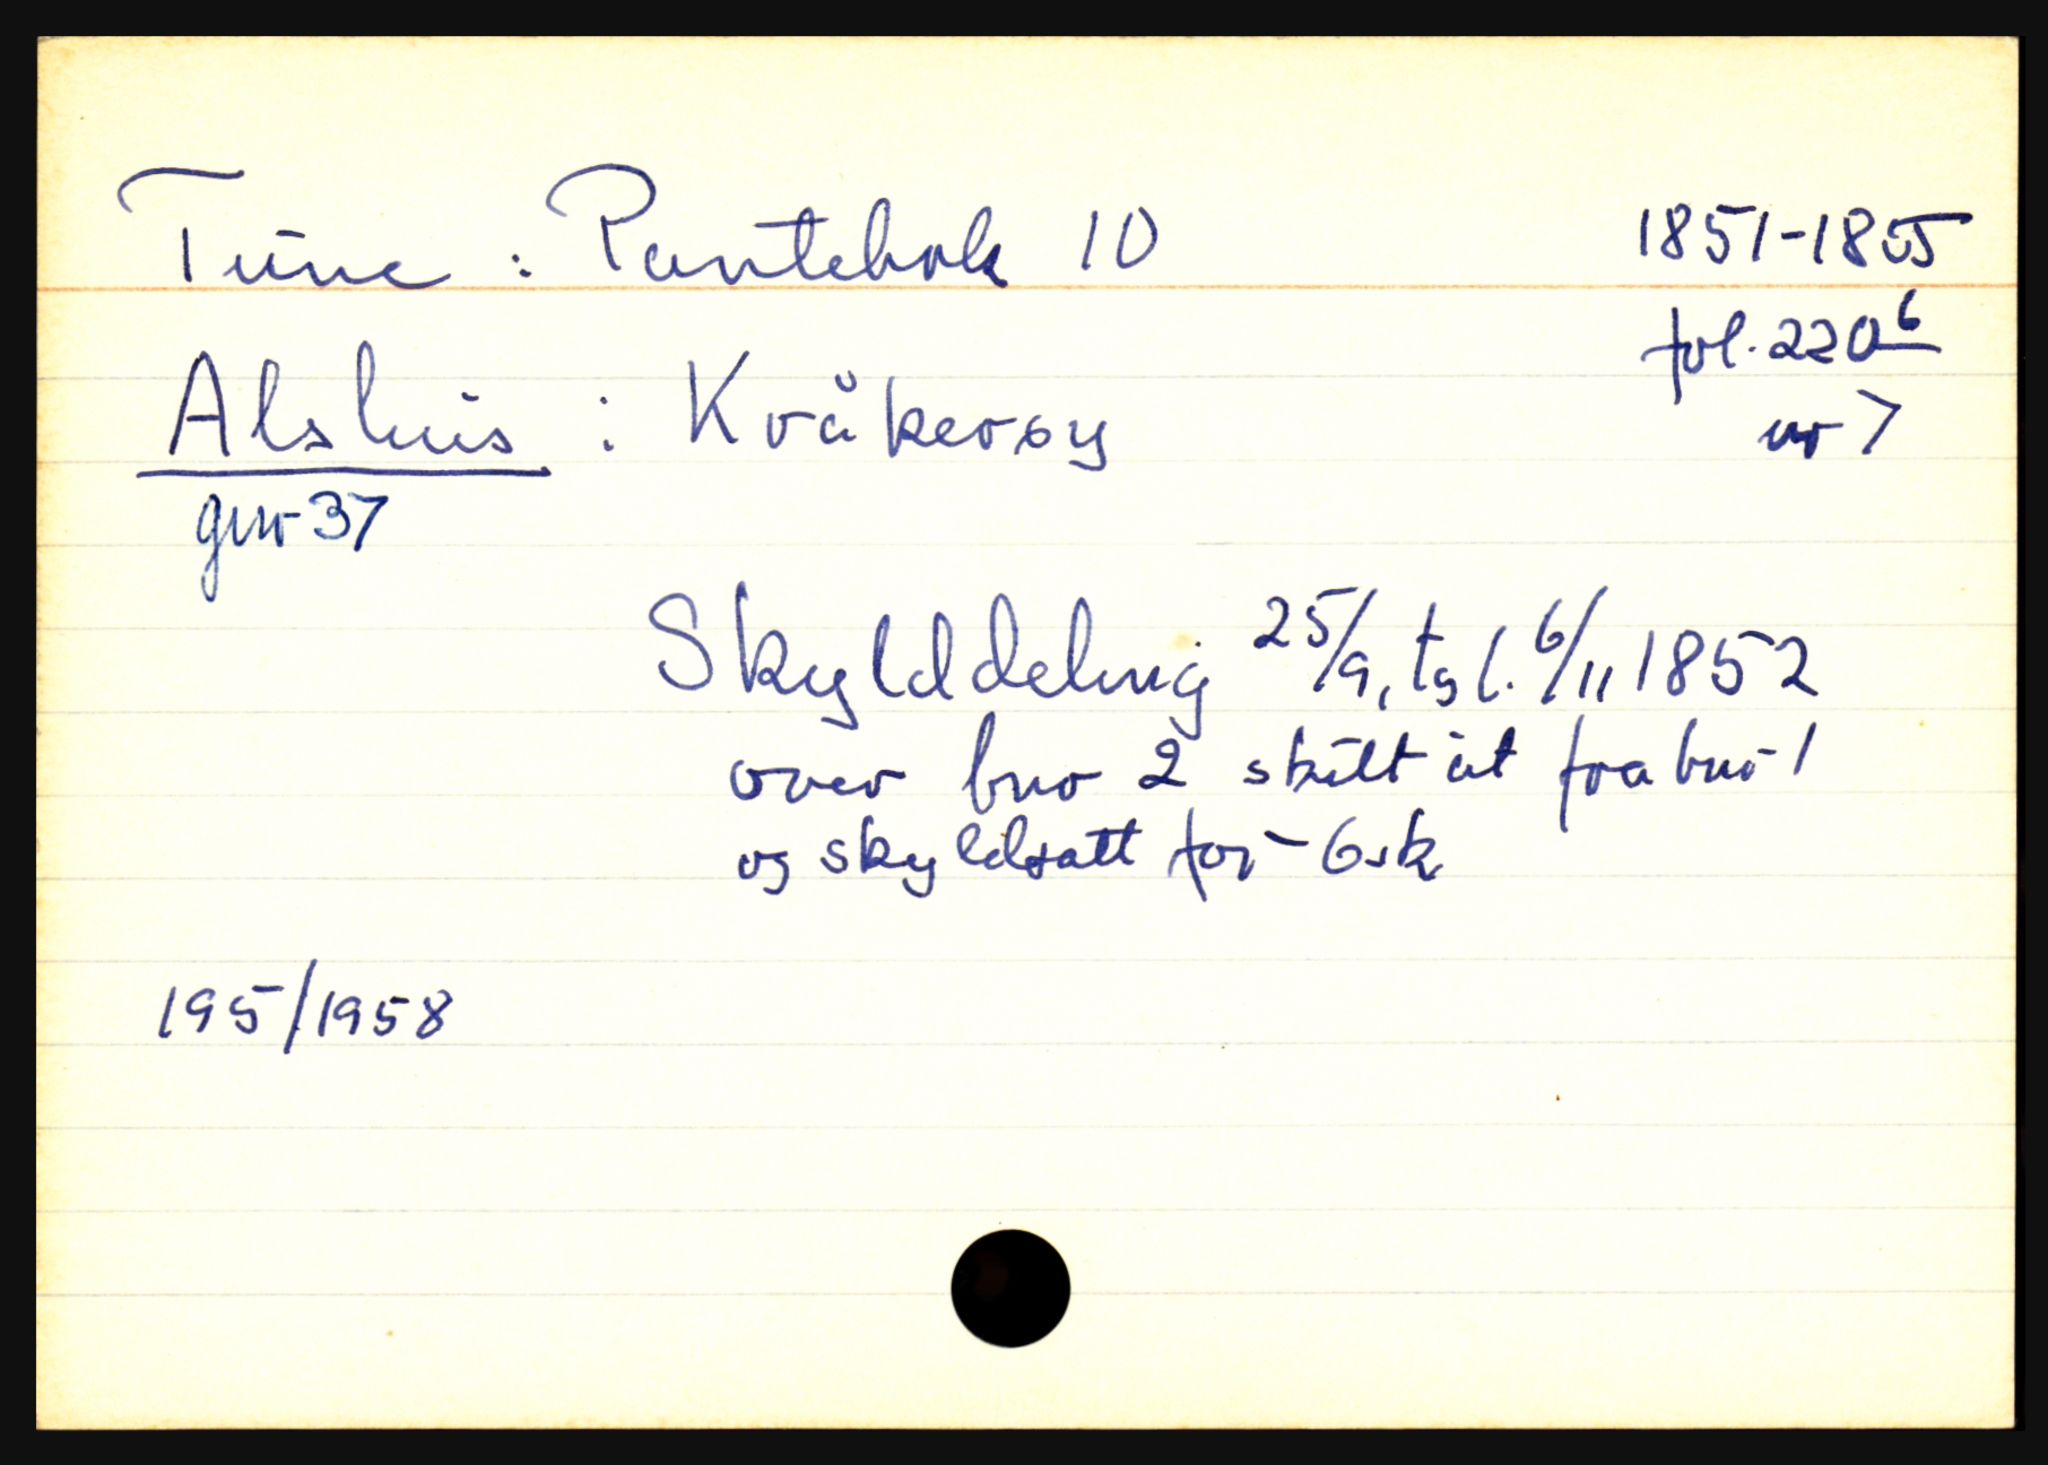 Tune : Pantebok 10 1851-1855
fol. 220b
nr 7
Alshus : Kråkerøy
gnr 37
Skylddeling 25/9, tgl. 6/11 1852
over bnr 2 skilt ut fra bnr 1
og skyldsatt for - 6 sk
195/1958